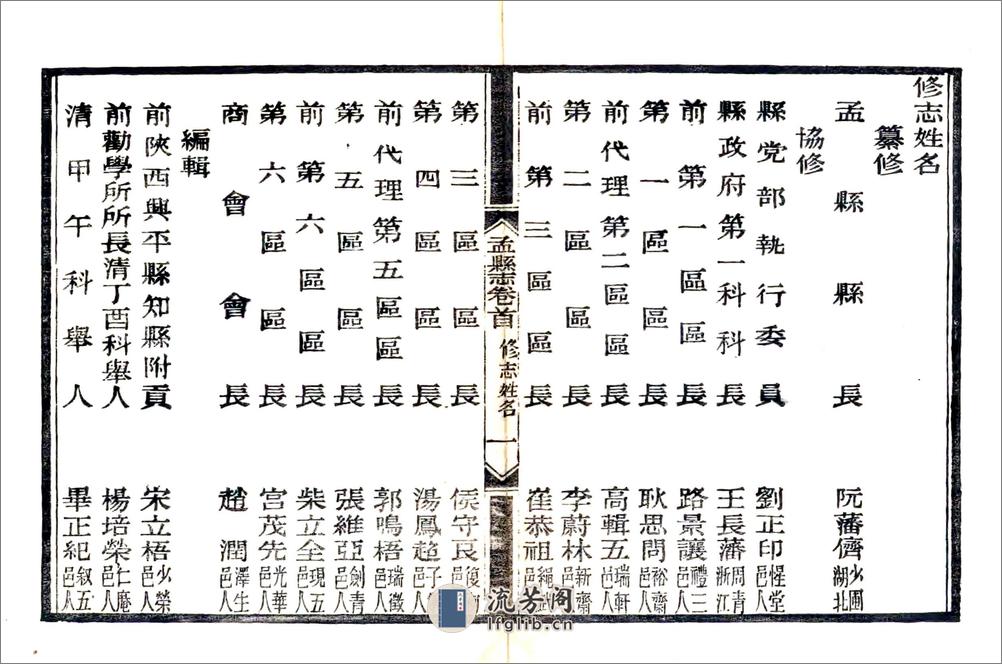 修志姓名
纂修
孟縣縣長　阮藩儕少圃湖北
協修
縣党部執行委員　劉正印惺堂邑人
縣政府第一科科長　王長藩周青浙江
前第一區區長　路景讓禮三邑人
第一區區長　耿思問裕齋邑人
前代理第二區區長　高輯五瑞軒邑人
第二區區長　李蔚林新齋邑人
前第三區區長　崔恭祖繩武邑人
孟縣志卷首　修志姓名　一
第三區區長　侯守良
第四區區長　湯鳳超
前代理第五區區長　郭鳴梧瑞徵邑人
第五區區長　張維亞劍青邑人
前第六區區長　柴立全現五邑人
第六區區長　宮茂先光華邑人
商會會長　趙潤澤生邑人
編輯
前陝西興平縣知縣附貢　宋立梧少榮邑人
前勸學所所長清丁酉科舉人　楊培榮仁庵邑人
清甲午科舉人　畢正紀叙五邑人
流芳阁
lfglib.cn